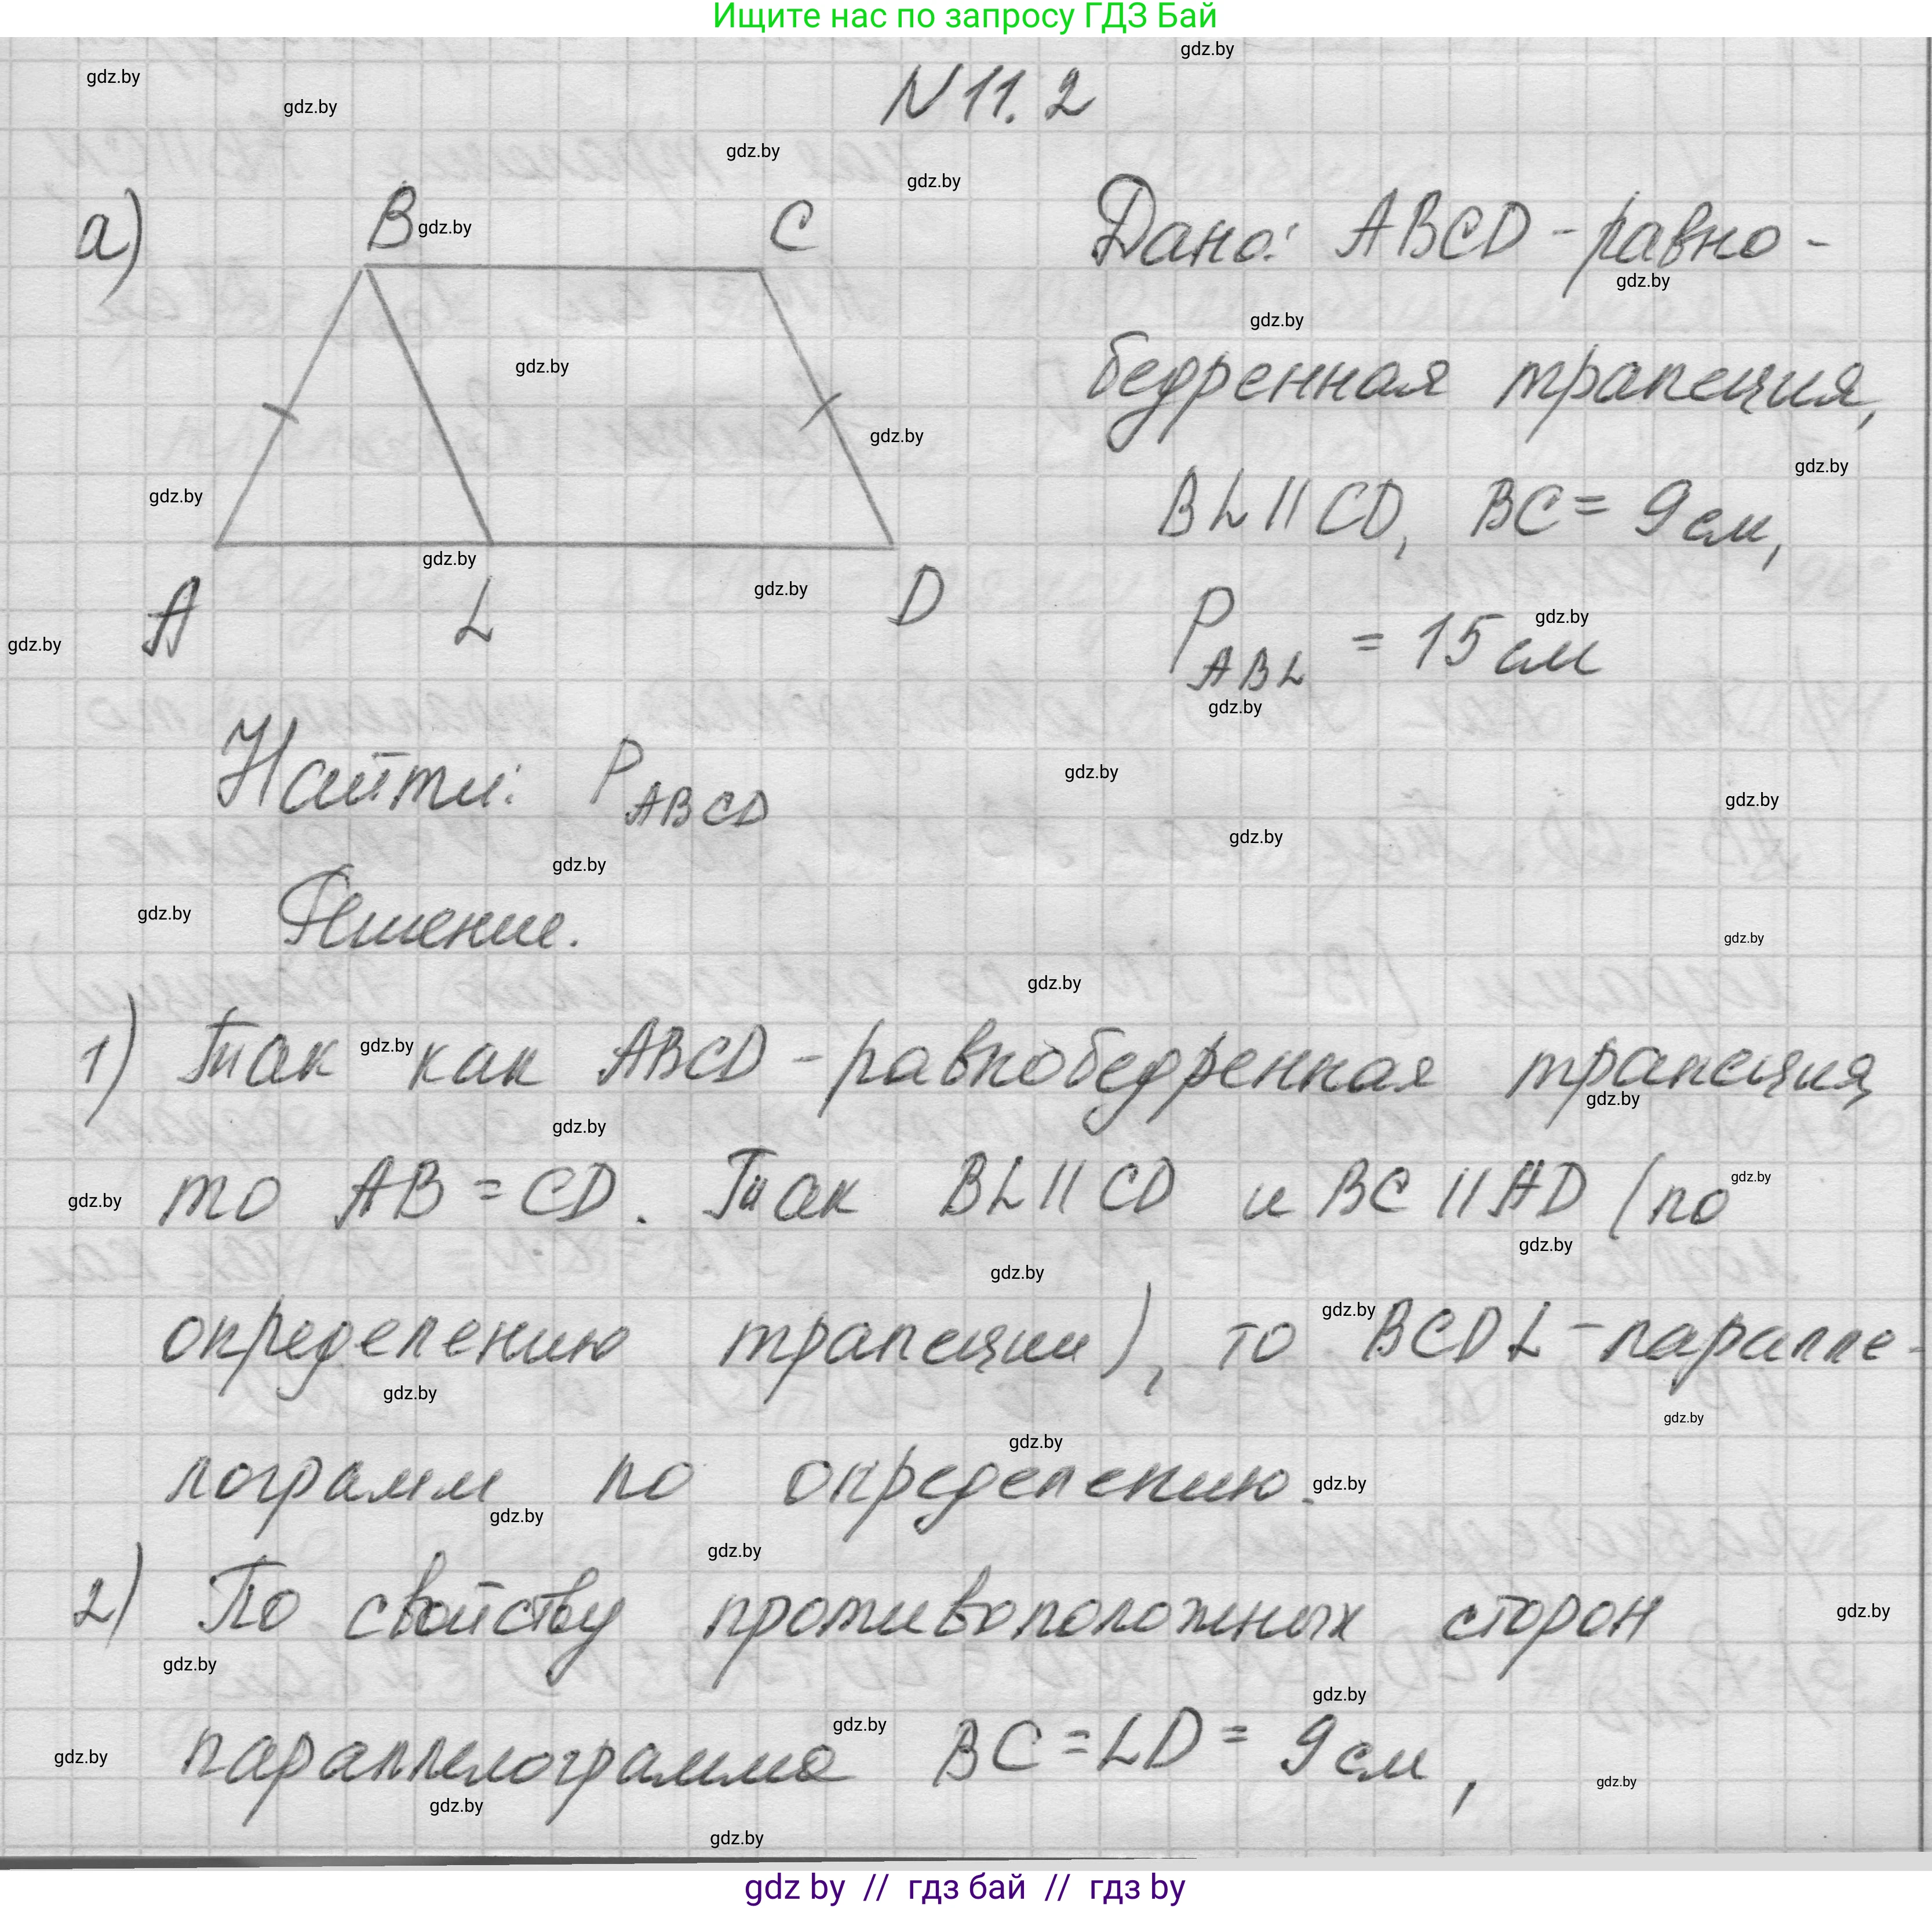 Ищите нас по запросу ГДЗ Бай
N 11. 2
а)
B
C
A
L
D
Дано: ABCD - равно-
бедренная трапеция,
BL || CD, BC = 9 см,
P ABL = 15 см
Найти: P ABCD
Решение.
1) Так как ABCD - равнобедренная трапеция,
то AB = CD. Так BL || CD и BC || AD (по
определению трапеции), то BCDL - паралле-
лограмм по определению.
2) По свойству противоположных сторон
параллелограмма BC = LD = 9 см,
gdz by // гдз бай // гдз by
gdz.by